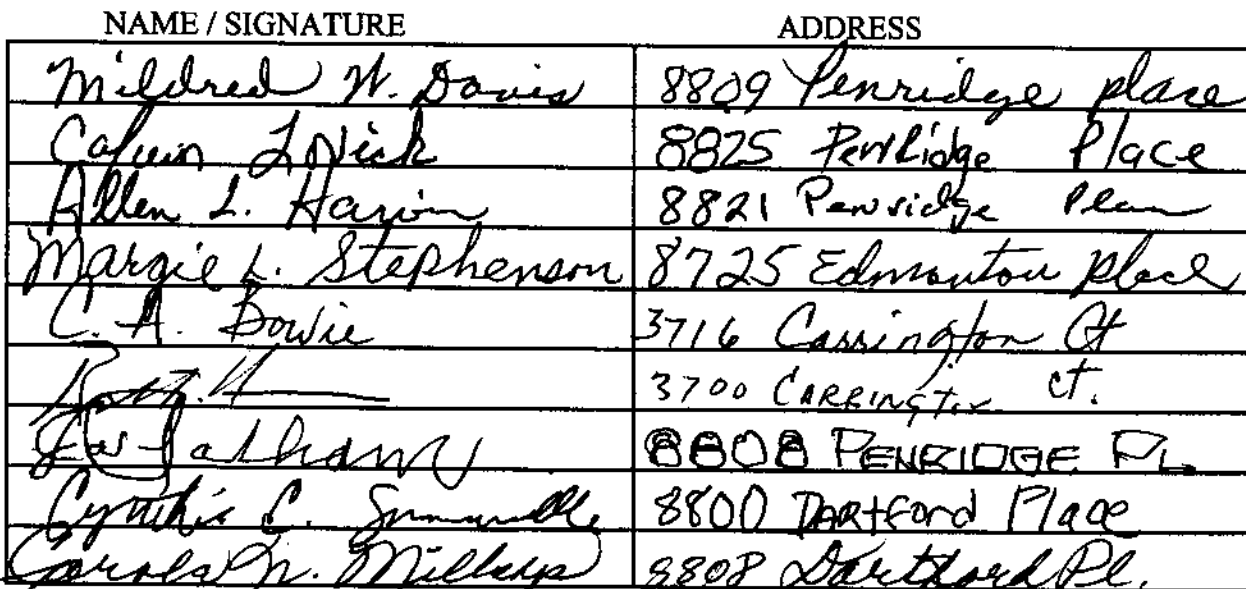 NAME / SIGNATURE ADDRESS
Mildred W. Davis 8809 Penridge place
Calvin L Nick 8825 PenRidge Place
Allen L. 8821 Penridge
Margie L. Stephenson 8725 Edmonton place
C. A. Bowie 3716 Carrington Ct
3700 CARRINGTON ct.
8808 PENRIDGE PL
Cynthia C. 8800 DARTford Place
N. Millsaps 8808 Dartford Pl.